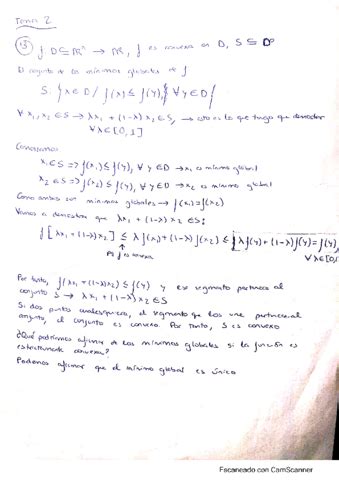 Tema 2
13) f: D ⊆ ℝⁿ → ℝ, f es convexa en D, S ⊆ D
El conjunto de los mínimos globales de f
S: {x ∈ D / f(x) ≤ f(y), ∀ y ∈ D}
∀ x₁, x₂ ∈ S → λx₁ + (1-λ) x₂ ∈ S, → esto es lo que tengo que demostrar
∀ λ ∈ [0,1]
Conocemos:
x₁ ∈ S => f(x₁) ≤ f(y), ∀ y ∈ D → x₁ es mínimo global
x₂ ∈ S => f(x₂) ≤ f(y), ∀ y ∈ D → x₂ es mínimo global
Como ambos son mínimos globales → f(x₁) = f(x₂)
Vamos a demostrar que λx₁ + (1-λ) x₂ ∈ S:
f[λx₁ + (1-λ)x₂] ≤ λ f(x₁) + (1-λ) f(x₂) ≤ λ f(y) + (1-λ) f(y) = f(y)
f es convexa
∀ λ ∈ [0,1]
Por tanto, f(λx₁ + (1-λ)x₂) ≤ f(y) y ese segmento pertenece al
conjunto S → λx₁ + (1-λ) x₂ ∈ S
Si dos puntos cualesquiera, el segmento que los une pertenece al
conjunto, el conjunto es convexo. Por tanto, S es convexo
¿Qué podríamos afirmar de los mínimos globales si la función es
estrictamente convexa?
Podemos afirmar que el mínimo global es único
Escaneado con CamScanner